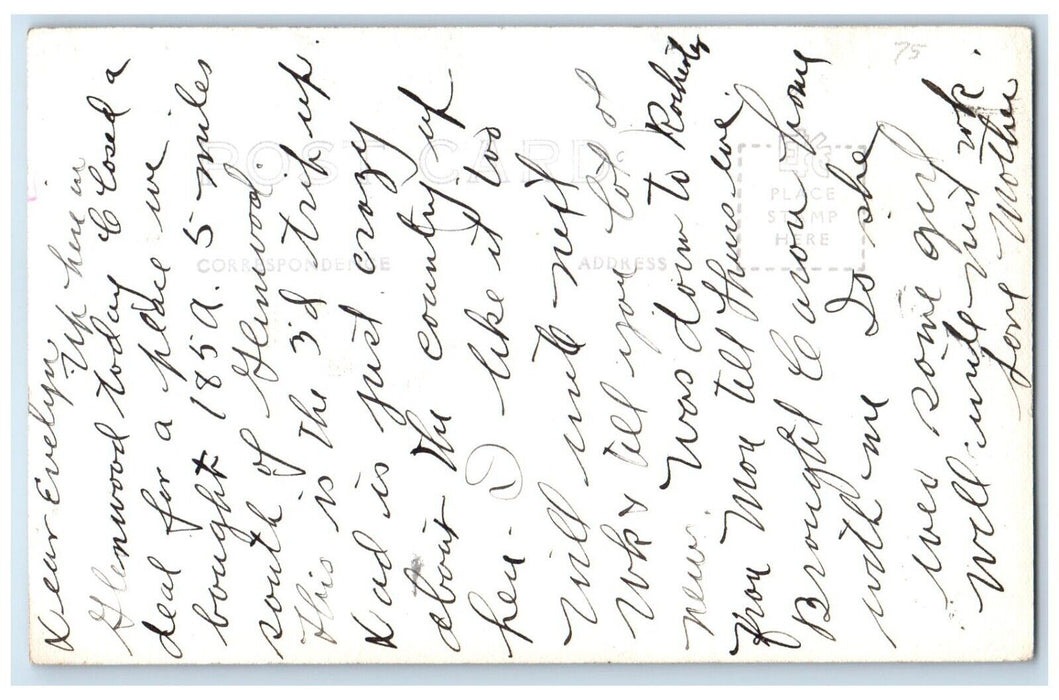 Dear Evelyn
Up here in
Glenwood today Closed a
deal for a place we
bought 185 A. 5 miles
south of Glenwood
this is the 3rd trip up.
Dad is just crazy
about the country up
here. I like it too
Will write next
wk & tell you lot of
news. Was down to Rochester
from Mon till Thurs eve.
Brought Carol home
with me Is she
ever some girl
Will write next wk.
Love Mother
75
POST CARD
CORRESPONDENCE
ADDRESS
PLACE
STAMP
HERE